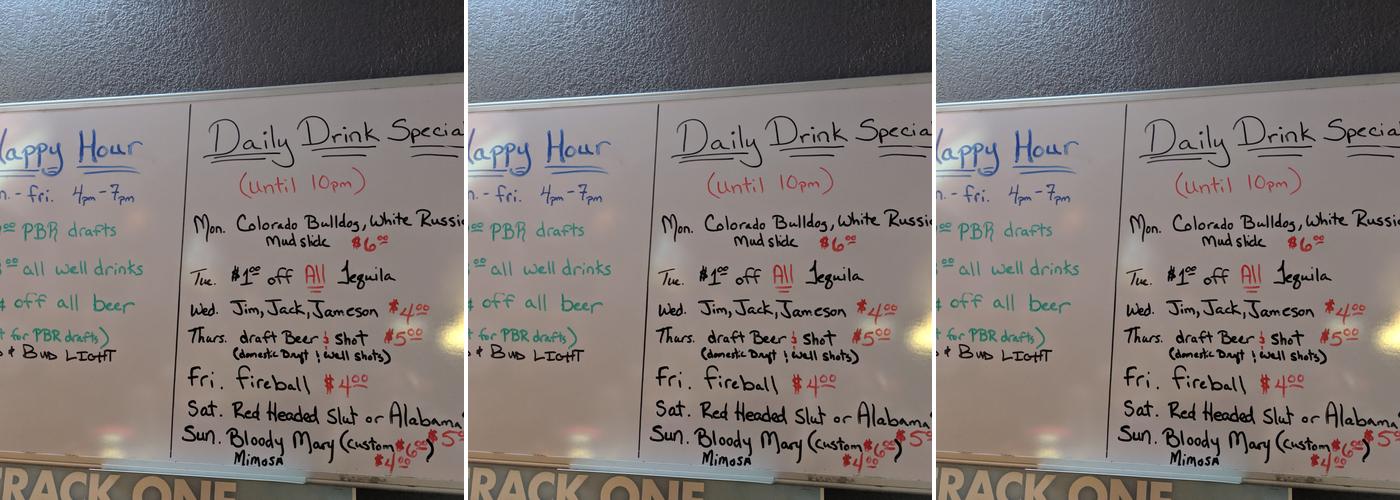 Happy Hour
n. - fri. 4pm-7pm
00 PBR drafts
00 all well drinks
off all beer
t for PBR drafts)
& BUD LIGHT
Daily Drink Specia
(until 10pm)
Mon. Colorado Bulldog, White Russi
Mudslide $6.00
Tue. $1.00 off All Tequila
Wed. Jim, Jack, Jameson $4.00
Thurs. draft Beer & shot $5.00
(domestic Draft & well shots)
Fri. fireball $4.00
Sat. Red Headed Slut or Alabama
$5
Sun. Bloody Mary (custom $6.00)
Mimosa $4.00
RACK ONE
Happy Hour
n. - fri. 4pm-7pm
00 PBR drafts
00 all well drinks
off all beer
t for PBR drafts)
& BUD LIGHT
Daily Drink Specia
(until 10pm)
Mon. Colorado Bulldog, White Russi
Mudslide $6.00
Tue. $1.00 off All Tequila
Wed. Jim, Jack, Jameson $4.00
Thurs. draft Beer & shot $5.00
(domestic Draft & well shots)
Fri. fireball $4.00
Sat. Red Headed Slut or Alabama
$5
Sun. Bloody Mary (custom $6.00)
Mimosa $4.00
RACK ONE
Happy Hour
n. - fri. 4pm-7pm
00 PBR drafts
00 all well drinks
off all beer
t for PBR drafts)
& BUD LIGHT
Daily Drink Specia
(until 10pm)
Mon. Colorado Bulldog, White Russi
Mudslide $6.00
Tue. $1.00 off All Tequila
Wed. Jim, Jack, Jameson $4.00
Thurs. draft Beer & shot $5.00
(domestic Draft & well shots)
Fri. fireball $4.00
Sat. Red Headed Slut or Alabama
$5
Sun. Bloody Mary (custom $6.00)
Mimosa $4.00
RACK ONE